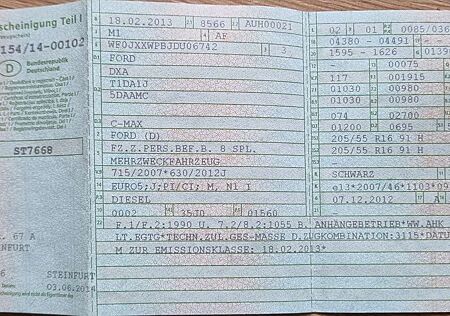 scheinigung Teil I
154/14-00102
D
Bundesrepublik
Deutschland
ST7668
67 A
NFURT
6 STEINFURT
03.06.2014
18.02.2013 8566 AUH00021
M1 AF
WF0JXXWPBJDU06742 3
FORD
DXA
T1DA1J
5DAAMC
C-MAX
FORD (D)
FZ.Z.PERS.BEF.B. 8 SPL.
MEHRZWECKFAHRZEUG
715/2007*630/2012J
EURO5;J;PI/CI; M, N1 I
DIESEL
0002 35J0 01560
02 01 0085/036
04380 -04491 -
1595 -1626 0139
- 00075
117 001915
01030 00980
01030 00980
074 02700
01200 0695
205/55 R16 91 H
205/55 R16 91 H
SCHWARZ
e13*2007/46*1103*09
07.12.2012
F.1/F.2:1990 U. 7.2/8.2:1055 B. ANHÄNGEBETRIEB*WW.AHK
LT.EGTG*TECHN.ZUL.GES-MASSE D.ZUGKOMBINATION:3115*DATU
M ZUR EMISSIONSKLASSE: 18.02.2013*